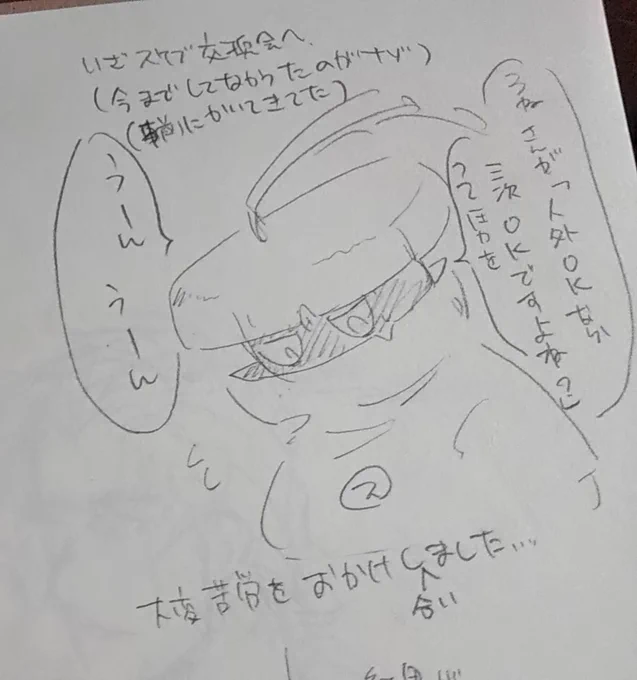 いざスケブ交換会へ
(今までしてなかったのがナゾ)
にかいてきてた)
うーん うーん
さんが「人外OKなら
三次OKですよね?」
って圧力を
ス
大変苦労をおかけしました…
合い